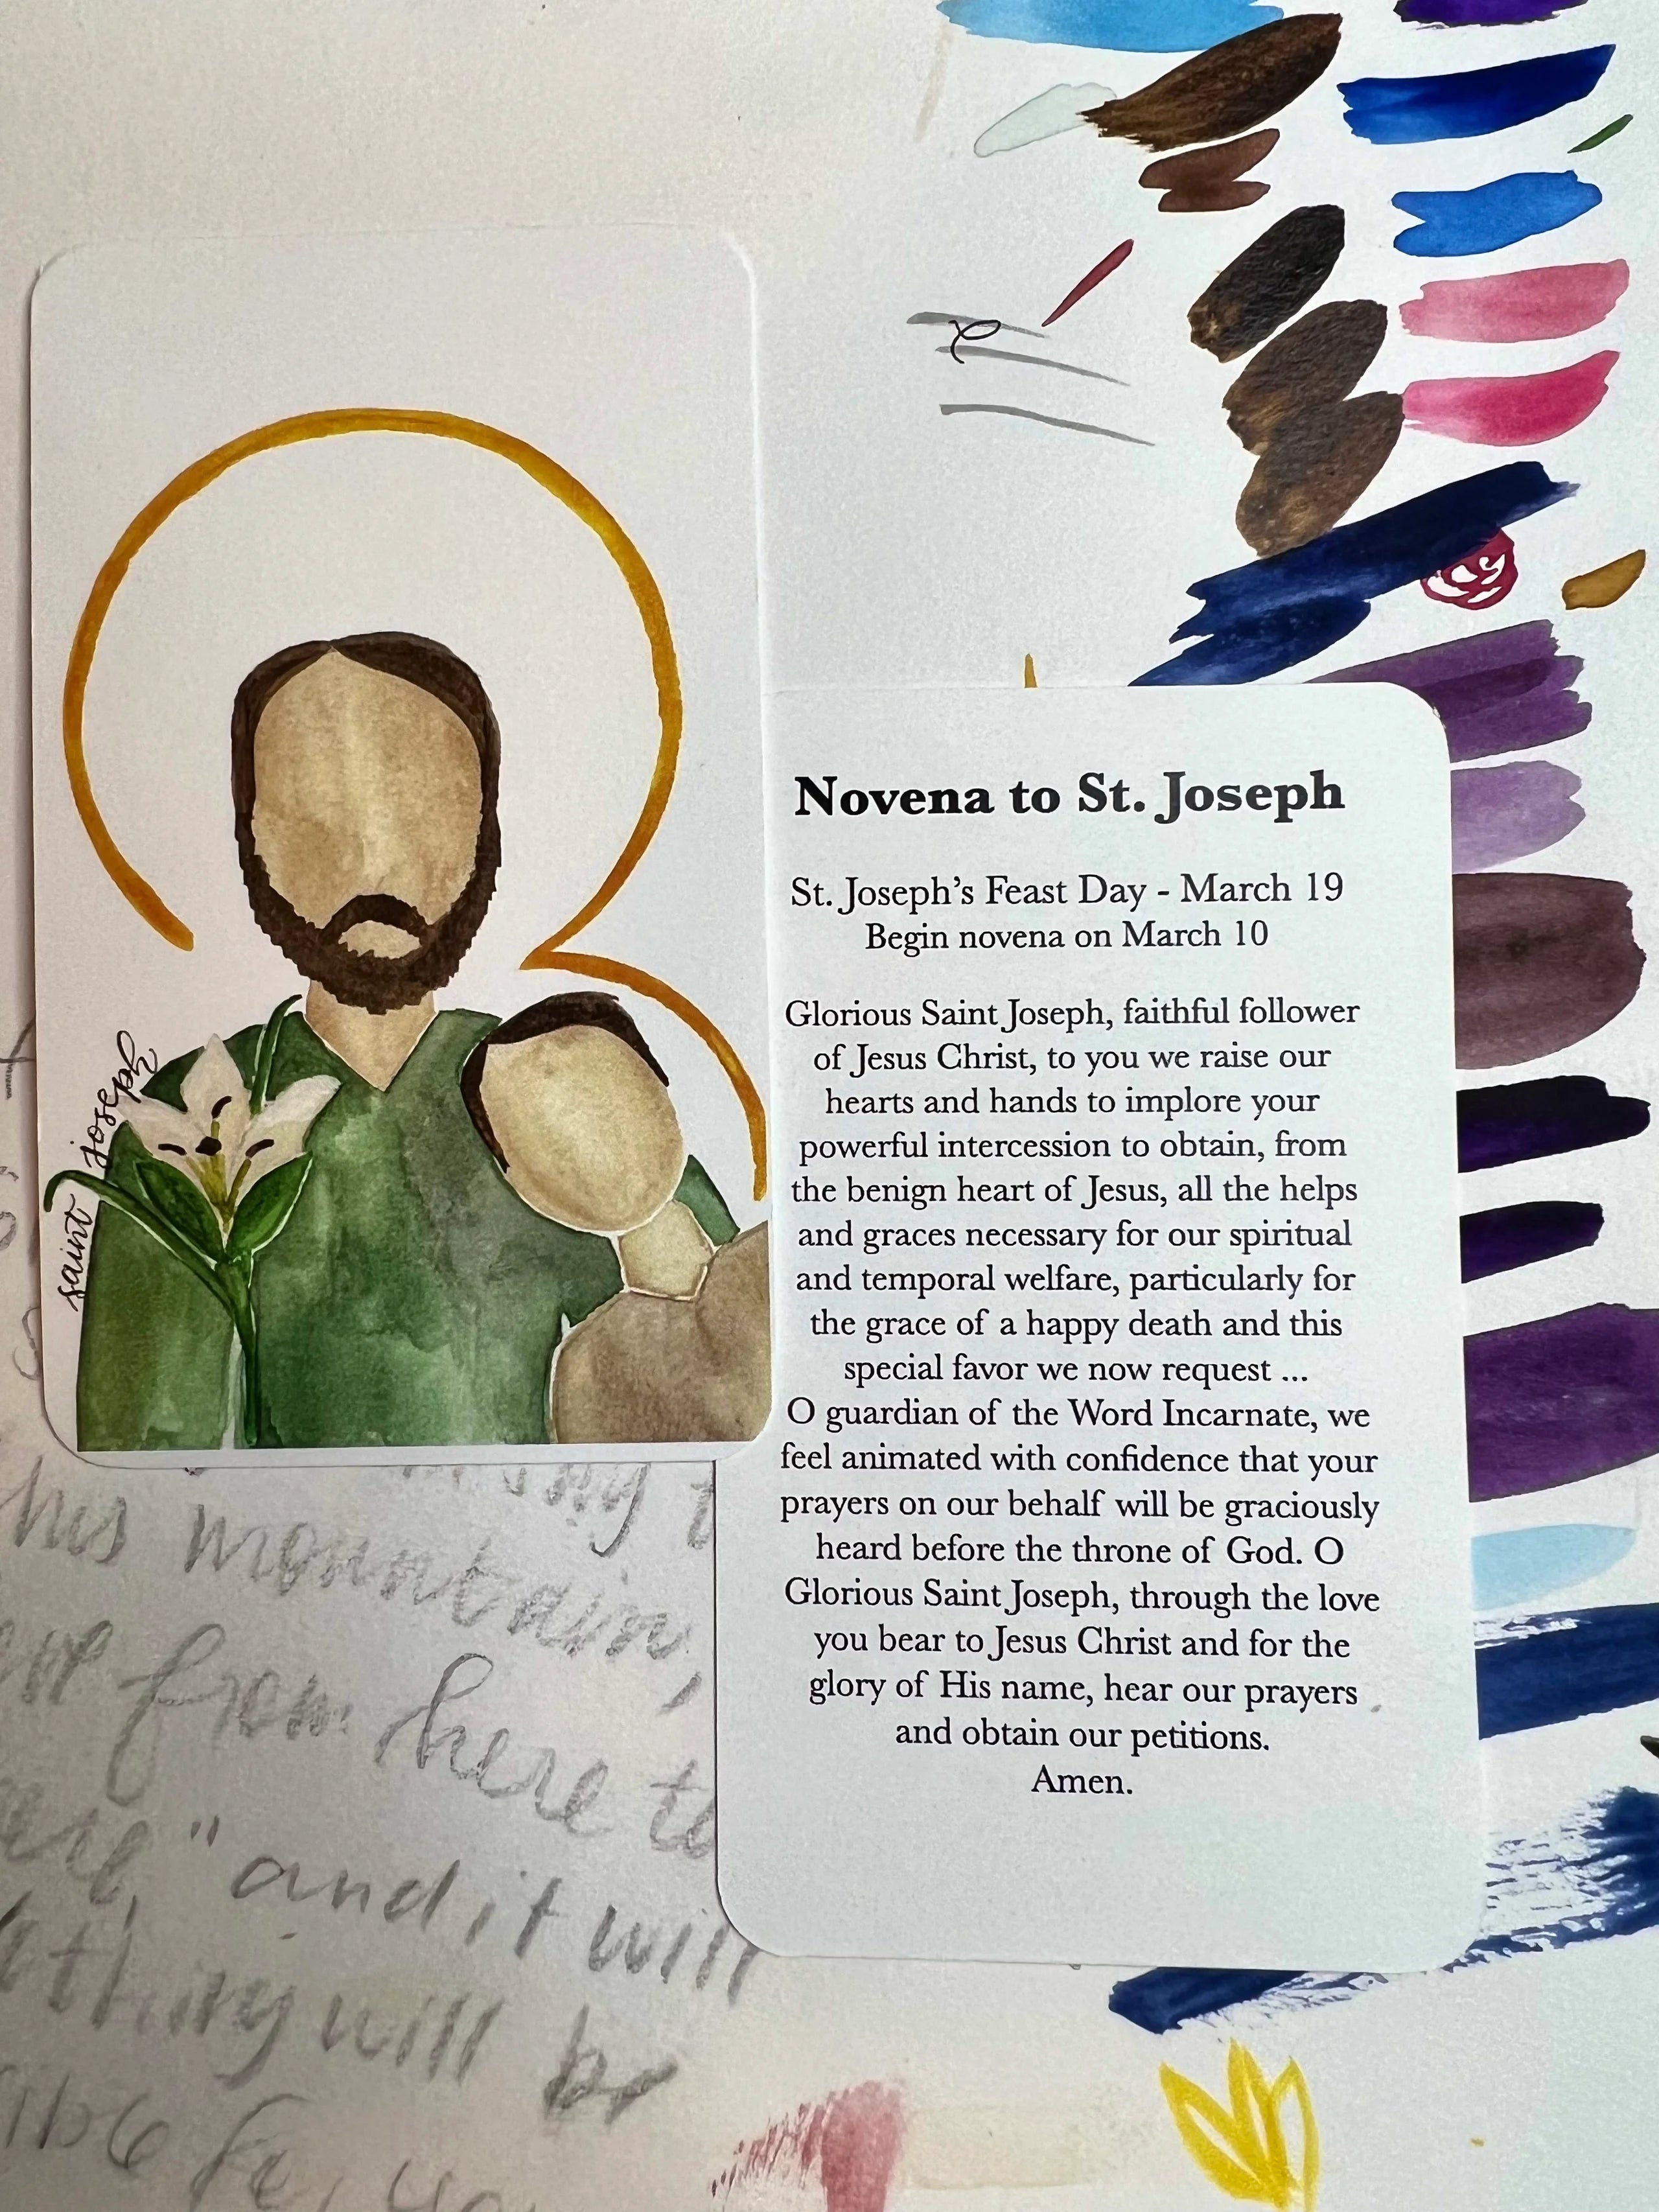 saint joseph
Novena to St. Joseph
St. Joseph's Feast Day - March 19
Begin novena on March 10
Glorious Saint Joseph, faithful follower
of Jesus Christ, to you we raise our
hearts and hands to implore your
powerful intercession to obtain, from
the benign heart of Jesus, all the helps
and graces necessary for our spiritual
and temporal welfare, particularly for
the grace of a happy death and this
special favor we now request ...
O guardian of the Word Incarnate, we
feel animated with confidence that your
prayers on our behalf will be graciously
heard before the throne of God. O
Glorious Saint Joseph, through the love
you bear to Jesus Christ and for the
glory of His name, hear our prayers
and obtain our petitions.
Amen.
mountain,
from here to
" and it will
thing will be